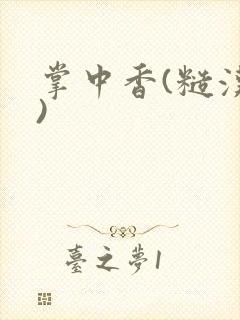 掌中香(糙汉
)
臺之夢1